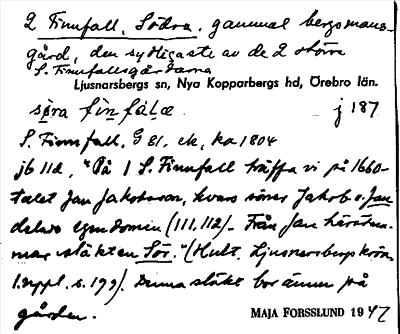 2 Finnfall, Södra, gammal bergsmans-
gård, den sydligaste av de 2 större
S. Finnfallsgårdarna
Ljusnarsbergs sn, Nya Kopparbergs hd, Örebro län.
søra finfalæ j 187
S. Finnfall, G 81. ek, ka 1804
jb 112, "På 1 S. Finnfall träffa vi på 1660-
talet Jan Jakobsson, hvars söner Jakob o. Jan
delade egendomen (111, 112). Från Jan härstam-
mar släkten Sör." (Hult, Ljusnarsbergs krön.
1. uppl. s. 199). Denna släkt bor ännu på
gården.
MAJA FORSSLUND 1947